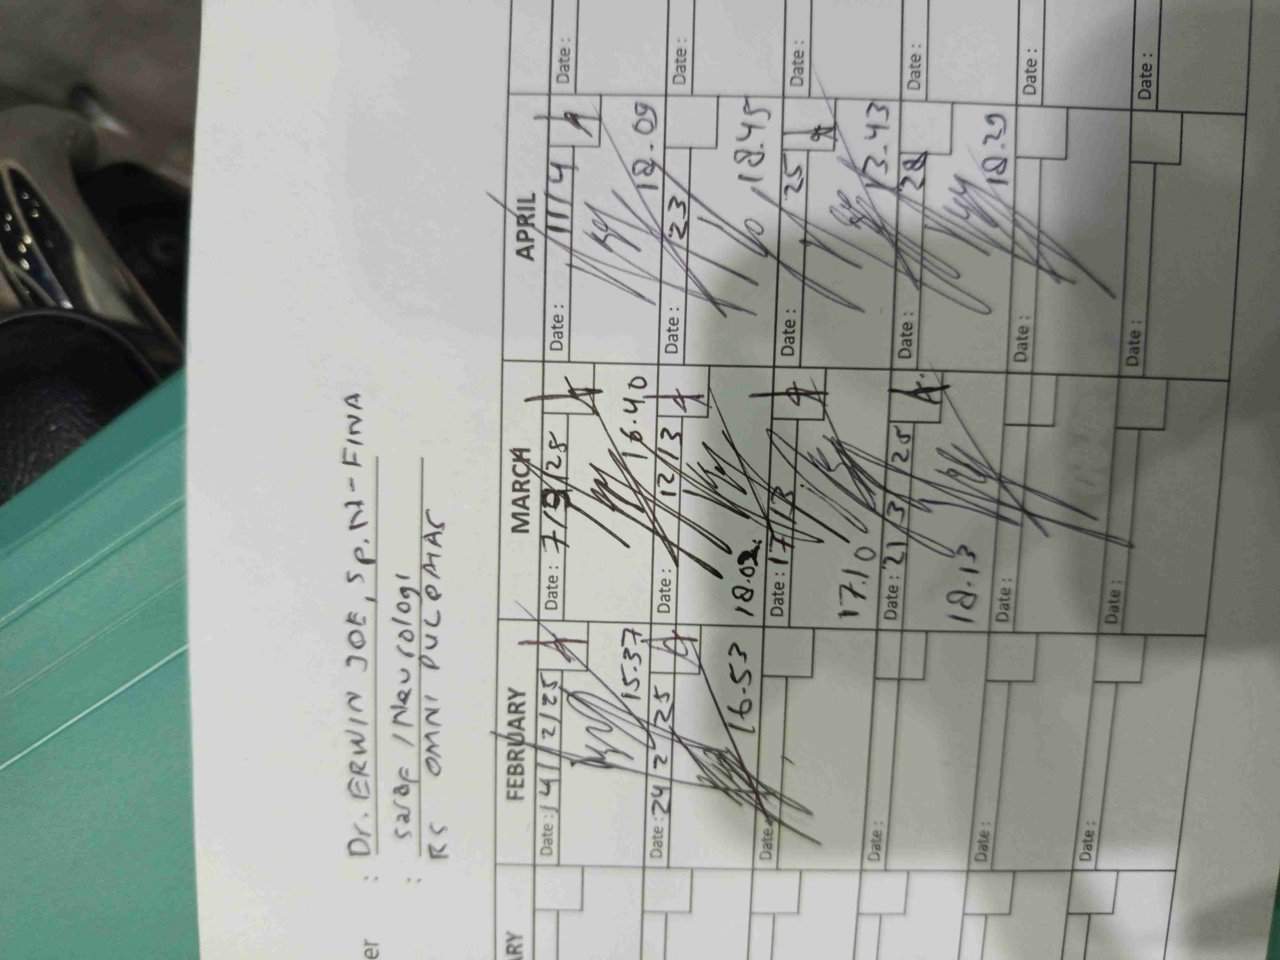 er : Dr. ERWIN JOE, Sp.N - FINA
: saraf / Neurologi
RS OMNI PULOMAS
ARY FEBRUARY MARCH APRIL
Date: 14/2/25 Date: 7/3/25 Date: 11/4 Date:
15.37 16.40 18.09
Date: 24 2 25 Date: 12/3 Date: 23 Date:
16.53 18.02 18.45
Date: Date: 17/3 Date: 25 Date:
17.10 13.43
Date: Date: 21 3 25 Date: 28 Date:
18.13 18.29
Date: Date: Date: Date:
Date: Date: Date: Date: